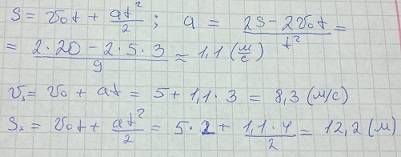 S = v₀t + at²/2 ; a = (2S - 2v₀t)/t² =
= (2·20 - 2·5·3)/9 ≈ 1,1 (м/с)
v₃ = v₀ + at = 5 + 1,1·3 = 8,3 (м/с)
S₂ = v₀t + at²/2 = 5·2 + (1,1·4)/2 = 12,2 (м)